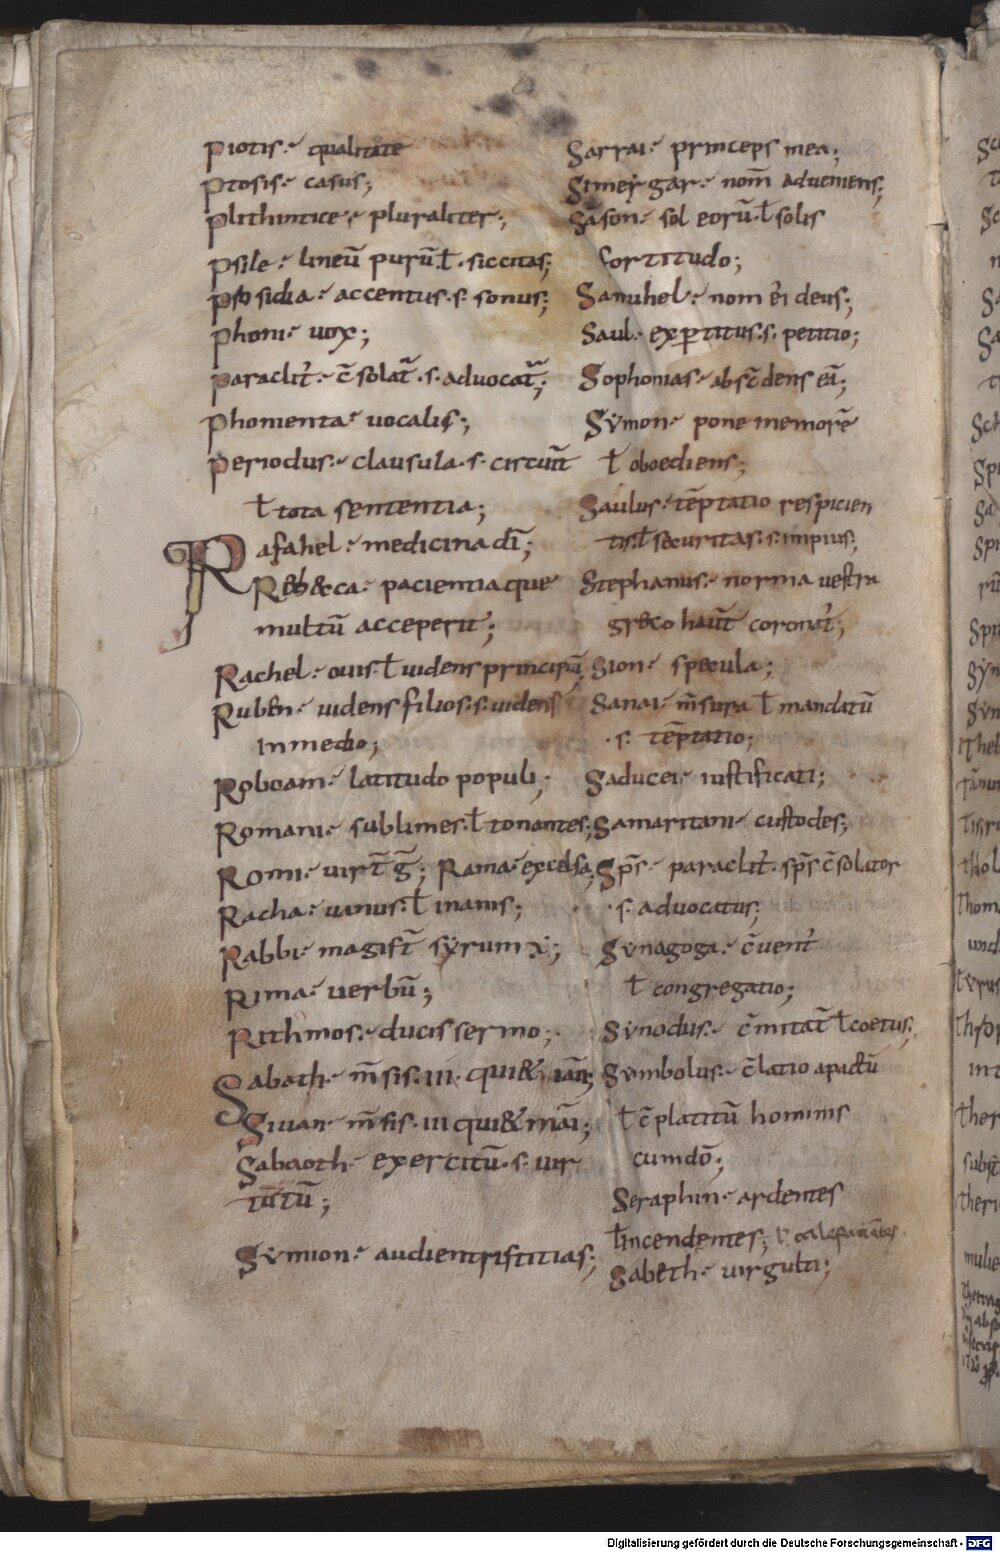 Piotis· qualitate
Ptosis· casus;
Plithintice· pluraliter;
Psile· lineū purū·ł·siccitas;
sidia· accentus·s·sonus;
Phoni· uox;
Paraclit̄· c̄solat̄·s·aduocat̄;
Phomenta· uocalis;
Periodus· clausula·s·circuit̄
ł tota sententia;
Rafahel· medicina dī;
Reb&ca· pacientia que
multū acceperit;
Rachel· ouis·ł uidens principiū;
Rubēn· uidens filios·s·uidens
in medio;
Roboam· latitudo populi;
Romani· sublimes·ł tonantes;
Romi· uirt̄ ḡ; Rama· excelsa;
Racha· uanus·ł inanis;
Rabbi· magist̄ syrum
Rima· uerbū;
Rithmos· ducis sermo;
Sabath· m̄sis·III·qui& iān;
Siuan· m̄sis·III qui& māi;
Sabaoth· exercitū·s·uir
tutū;
Symion· audiens tristitias;
Sarrai· princeps mea;
gar· nom̄ adueniens;
Sāson· sol eorū·ł solis
fortitudo;
Samuhel· nom ēi deus;
Saul· expetitus·s·petitio;
Sophonias· absc̄dens eū;
Symon· pone memorē
ł oboediens;
Saulus· tēptatio respicien
tis·ł securitas·s·impius;
Stephanus· norma uestra
greco haūt coronat̄;
Sion· specula;
Sanai· m̄sura ł mandatū
·s· tēptatio;
Saducei· iustificati;
Samaritani· custodes;
Sp̄s· paraclit̄·sp̄s c̄solator
·s·aduocatus;
Synagoga· c̄uent̄
ł congregatio;
Synodus· c̄mitat̄ ł coetus;
Symbolus· c̄latio apactū
ł c̄platitū hominis
cum dō;
Seraphin· ardentes
ł incendentes; ł calefacientes
Sabeth· uirgulti;
Digitalisierung gefördert durch die Deutsche Forschungsgemeinschaft - DFG